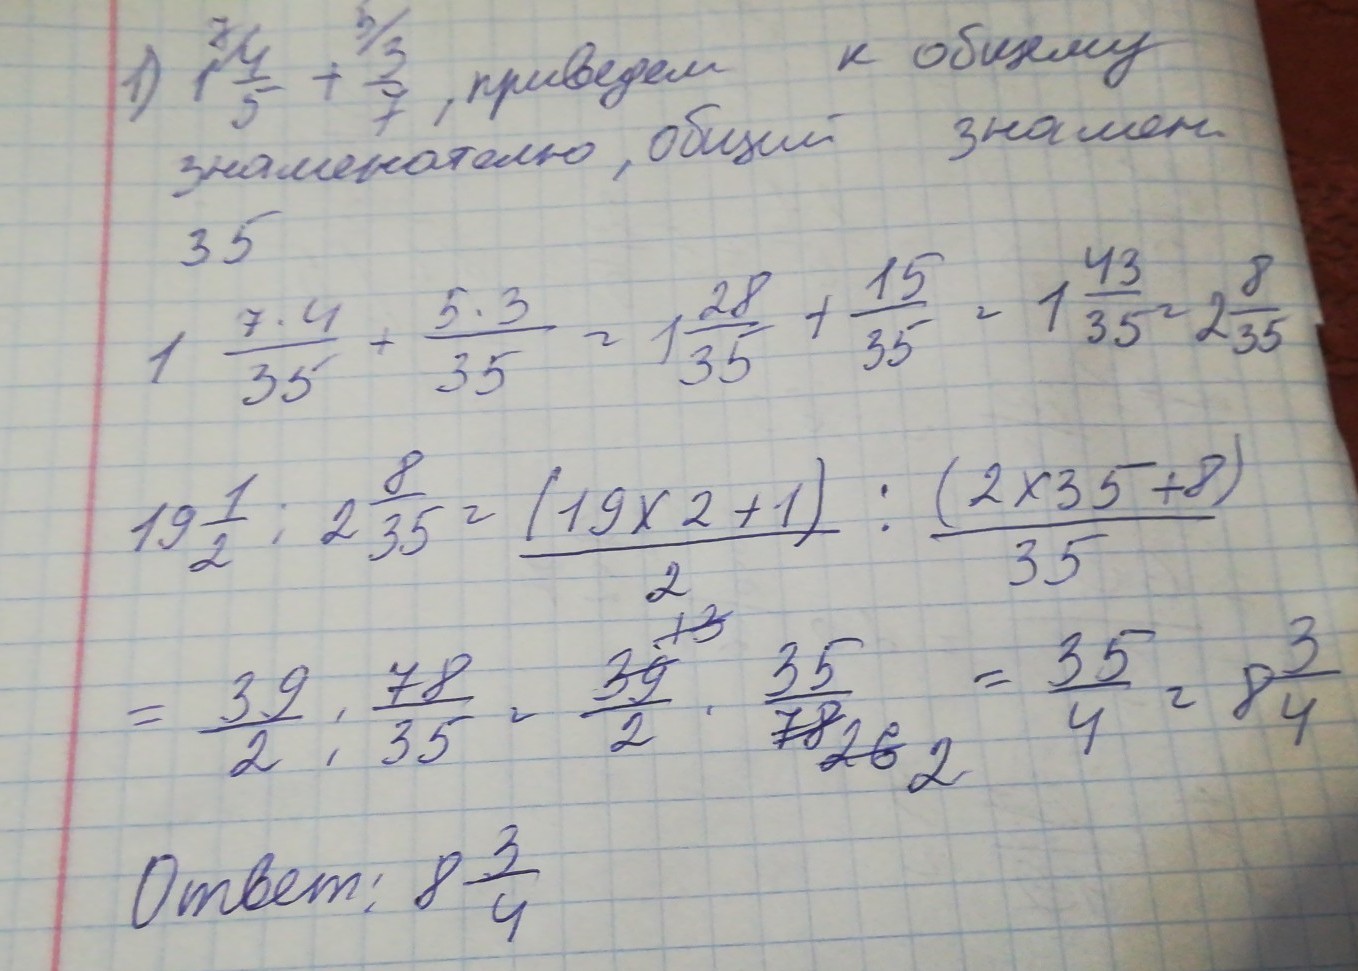 1) 1 7/4/5 + 5/3/7, приведем к общему
знаменателю, общий знамен.
35
1 7·4/35 + 5·3/35 = 1 28/35 + 15/35 = 1 43/35 = 2 8/35
19 1/2 : 2 8/35 = (19×2+1)/2 : (2×35+8)/35
= 39/2 : 78/35 = 39/2 · 35/78 = 35/4 = 8 3/4
13
26 2
Ответ: 8 3/4